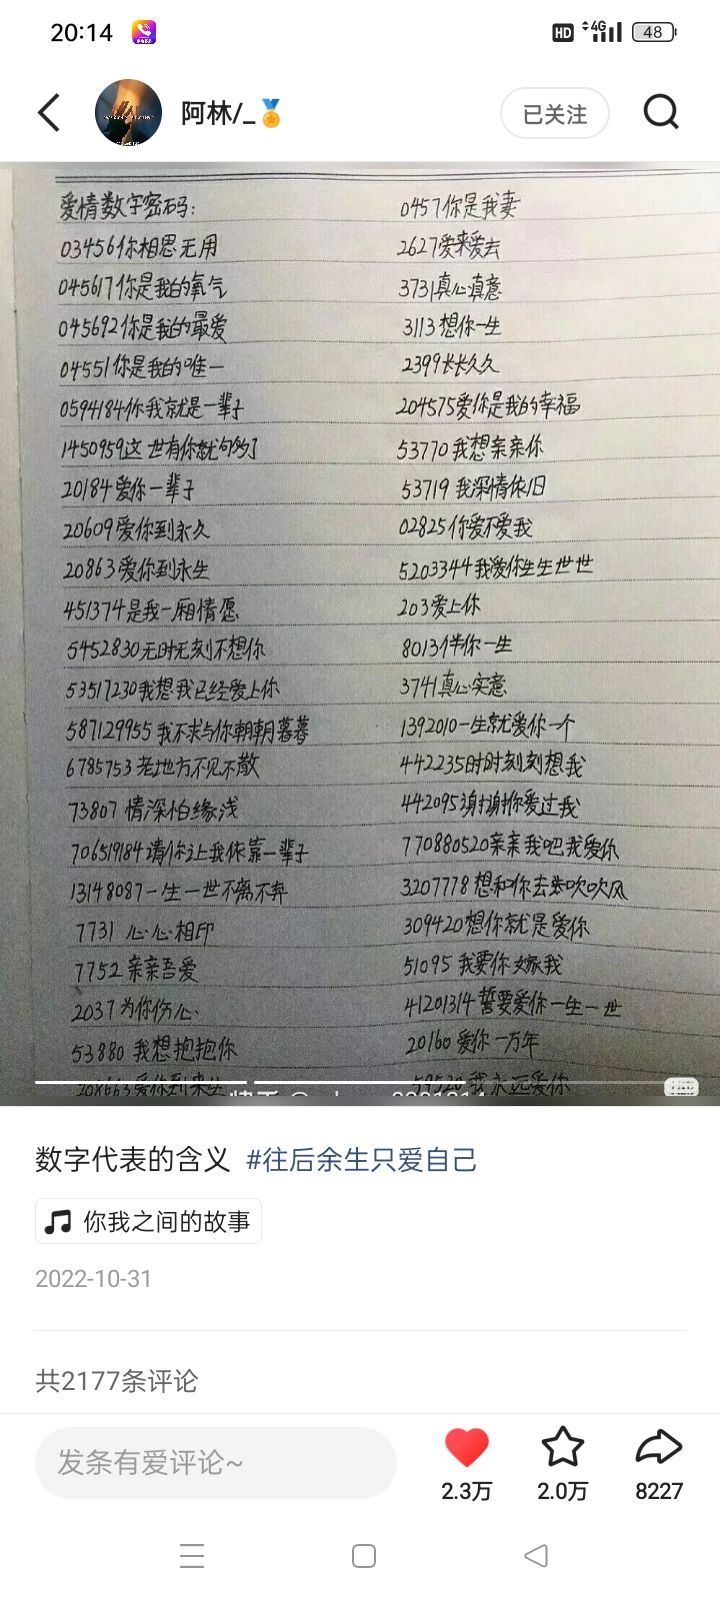 20:14
HD 4G 48
阿林/_🏅
已关注
爱情数字密码:
03456你相思无用
045617你是我的氧气
045692你是我的最爱
04551你是我的唯一
0594184你我就是一辈子
1450959这世有你就够了
20184爱你一辈子
20609爱你到永久
20863爱你到永生
451374是我一厢情愿
5452830无时无刻不想你
53517230我想我已经爱上你
587129955我不求与你朝朝暮暮
6785753老地方不见不散
73807情深怕缘浅
706519184请你让我依靠一辈子
13148087一生一世不离不弃
7731心心相印
7752亲亲吾爱
2037为你伤心
53880我想抱抱你
208663爱你到来生
0457你是我妻
2627爱来爱去
3731真心真意
3113想你一生
2399长长久久
204575爱你是我的幸福
53770我想亲亲你
53719我深情依旧
02825你爱不爱我
5203344我爱你生生世世
203爱上你
8013伴你一生
3741真心实意
1392010一生就爱你一个
442235时时刻刻想我
442095谢谢你爱过我
770880520亲亲我吧我爱你
3207778想和你去吹吹风
309420想你就是爱你
51095我要你嫁我
41201314誓要爱你一生一世
20160爱你一万年
59520我永远爱你
数字代表的含义 #往后余生只爱自己
你我之间的故事
2022-10-31
共2177条评论
发条有爱评论~
2.3万
2.0万
8227